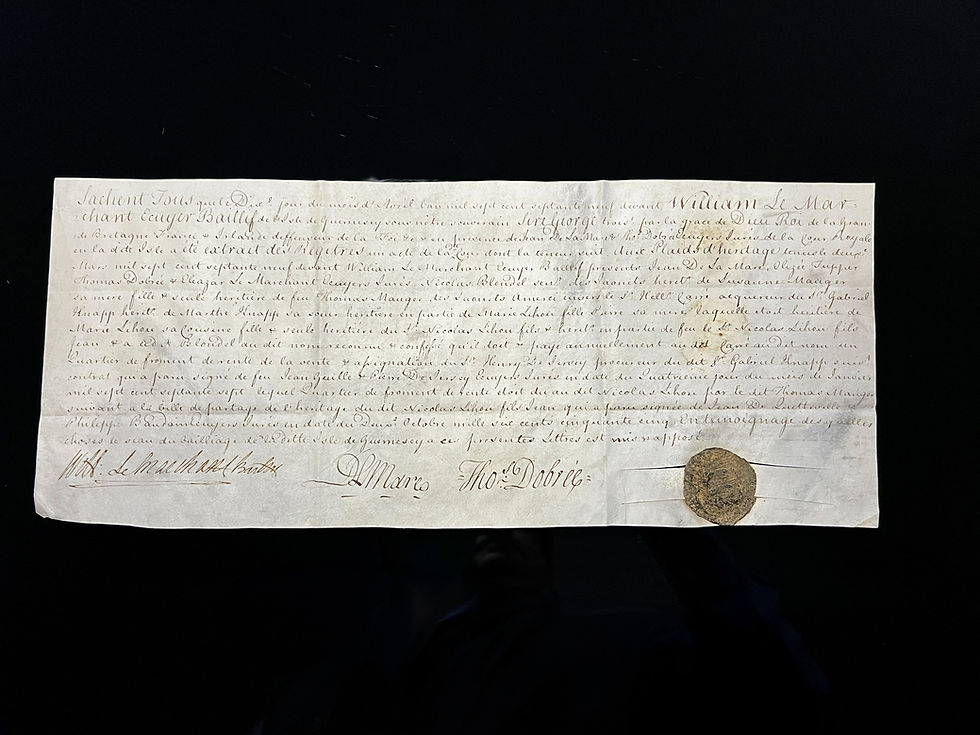 Sachent Tous que le Dixe. jour du mois d'Avril l'an mil sept cent septante neuf devant William Le Mar-
chant Ecuyer Baillif de l'Isle de Guernesey sous nôtre souverain Sire George trois.e par la grace de Dieu Roi de la Gran:
de Bretagne France & Irlande deffenseur de la Foi &c & en presence de Jean De La Mare & Thos. Dobrée Ecuyers Jurés de la Cour Royale
en la dite Isle a été extrait des Registres un acte de la Cour dont la teneur suit. Aux Plaids d'heritage tenus le
Mars mil sept cent septante neuf devant William Le Marchant Ecuyer Baillif presents Jean De La Mare, Elizée Tupper
Thomas Dobrée & Eleazar Le Marchant Ecuyers Jurés. Nicolas Blondel senr. des Jaonets herit. de Susanne Mauger
sa mere fille & seule heritiere de feu Thomas Mauger des Jaonets Amerci envers le Sr. Carré acquereur du Sr. Gabriel
Knapp herit. de Marthe Knapp sa soeur heritiere en partie de Marie Lihou fille Pierre sa mere laquelle étoit heritiere de
Marie Lihou sa Cousine fille & seule heritiere du Sr. Nicolas Lihou fils & herit. en partie de feu le Sr. Nicolas Lihou fils
Jean & a led. Blondel au dit nom reconnu & confessé qu'il doit & paye annuellement au dit Carré au dit nom un
Quartier de froment de rente de la vente & assignation du Sr. Henry De Jersey procureur du dit Sr. Gabriel Knapp
contrat qui a paru signé de feu Jean Guille & Pierre De Jersey Ecuyers Jurés en date du Quatrieme jour du mois de Janvier
mil sept cent septante sept, lequel Quartier de froment de rente étoit du au dit Nicolas Lihou par le dit Thomas Mauger
suivant a la bille de partage de l'heritage du dit Nicolas Lihou fils Jean qui a paru signée de Jean De Quetteville
Philippe Bandain Ecuyers Jurés en date du Octobre mille six cents cinquante cinq. En temoignage des quelles
choses le seau du Bailliage de la ditte Isle de Guernesey a ces presentes Lettres est mis n'apposé
Will. Le Marchant Baillif
DLMare Thos. Dobrée